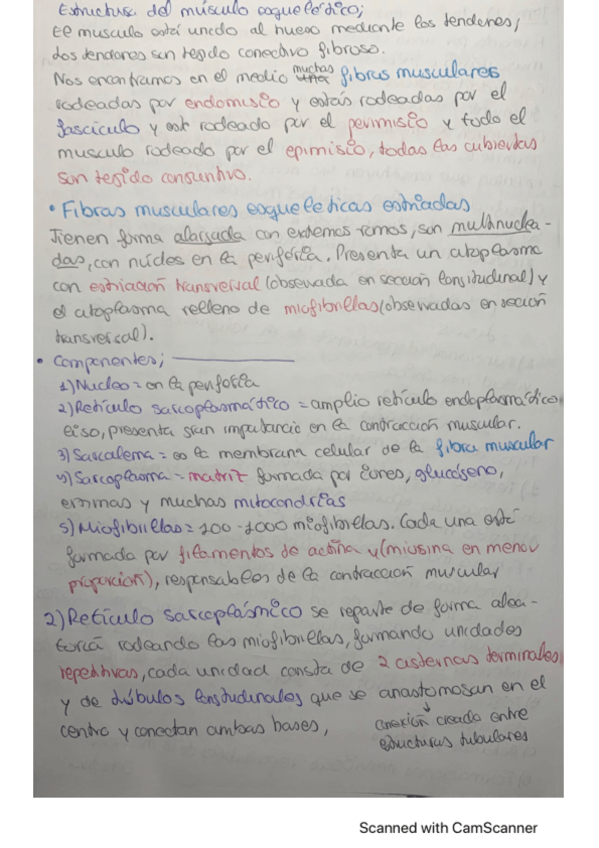 Estructura del músculo esquelético;
El musculo está unido al hueso mediante los tendones,
los tendones son tejido conectivo fibroso.
Nos encontramos en el medio muchas fibras musculares
rodeadas por endomisio y estas rodeadas por el
fascículo y est rodeado por el perimisio y todo el
musculo rodeado por el epimisio, todas las cubiertas
son tejido conjuntivo.
• Fibras musculares esqueléticas estriadas
Tienen forma alargada con extremos romos, son multinuclea-
das, con nucleos en la periferia. Presenta un citoplasma
con estriación transversal (observada en sección longitudinal) y
el citoplasma relleno de miofibrillas (observadas en sección
transversal).
• Componentes;
1) Nucleo = en la periferia
2) Retículo sarcoplasmático = amplio retículo endoplasmático
liso, presenta gran importancia en la contracción muscular.
3) Sarcolema = es la membrana celular de la fibra muscular
4) Sarcoplasma = matriz formada por iones, glucógeno,
enzimas y muchas mitocondrias
5) Miofibrillas = 200 - 2000 miofibrillas. Cada una está
formada por filamentos de actina y (miosina en menor
proporcion), responsables de la contracción muscular
2) Retículo sarcoplásmico se reparte de forma alea-
toria rodeando las miofibrillas, formando unidades
repetitivas, cada unidad consta de 2 cisternas terminales
y de túbulos longitudinales que se anastomosan en el
centro y conectan ambas bases,
↓
conexión creada entre
estructuras tubulares
Scanned with CamScanner